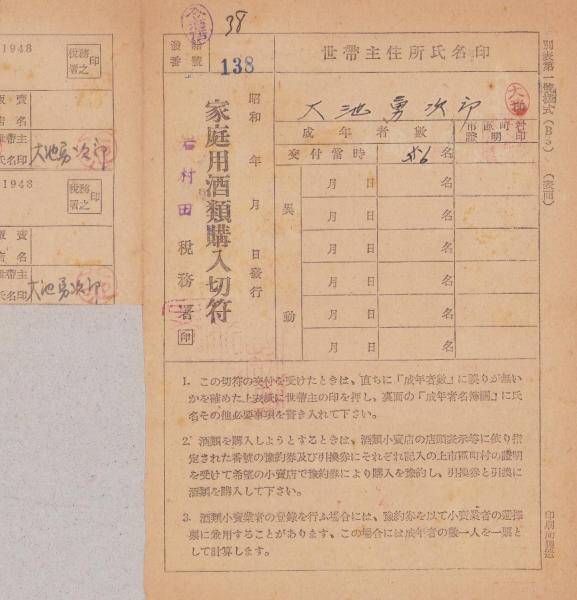 38
發給
番號
138
世帶主住所氏名印
大池勇次郎
成年者數
市區町村
證明印
交付當時
名
異動
月 日 名
月 日 名
月 日 名
月 日 名
月 日 名
月 日 名
昭和 年 月 日發行
家庭用酒類購入切符
岩村田稅務署印
1. この切符の交付を受けたときは、直ちに『成年者數』に誤りが無い
かを確めた上表紙に世帶主の印を押し、裏面の『成年者名簿欄』に氏
名その他必要事項を書き入れて下さい。
2. 酒類を購入しようとするときは、酒類小賣店の店頭表示等に依り指
定された番號の豫約券及び引換券にそれぞれ記入の上市區町村の證明
を受けて希望の小賣店で豫約券により購入を豫約し、引換券と引換に
酒類を購入して下さい。
3. 酒類小賣業者の登錄を行ふ場合には、豫約券を以て小賣業者の選擇
票に兼用することがあります、この場合には成年者の數一人を一票と
して計算します。
別表第一號樣式(B5) (表面)
印刷局製造
1948
稅務
署之
印
販賣
店名
世帶主
氏名印
大池勇次郎
1948
稅務
署之
印
販賣
店名
世帶主
氏名印
大池勇次郎